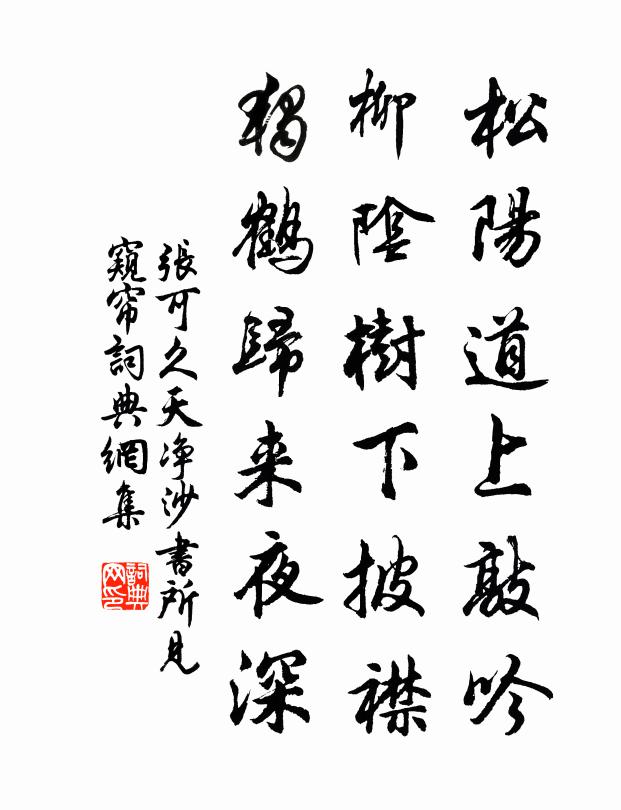 松陽道上敲吟
柳陰樹下披襟
獨鶴歸来夜深
張可久天净沙書所見
窺帘詞典網集
詞典网印